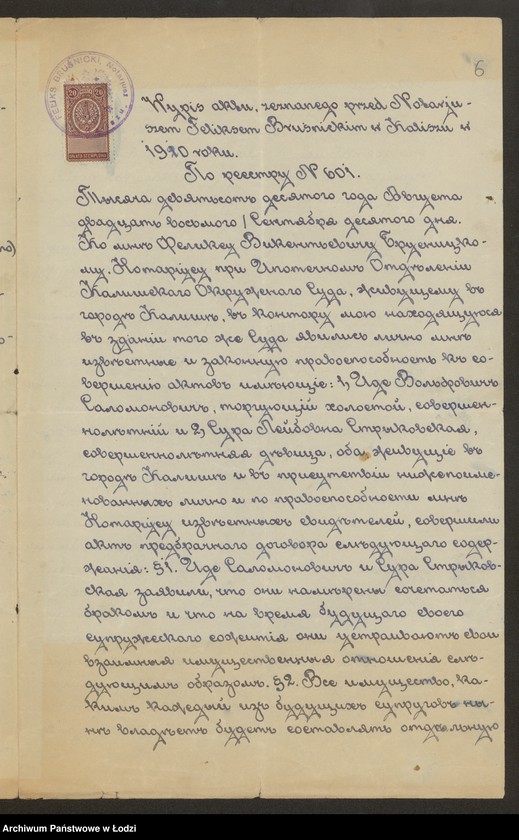 6
FELIKS BRUŚNICKI, Notariusz
20
Wypis aktu, zeznanego przed Notarju-
szem Feliksem Bruśnickim w Kaliszu w
1910 roku.
По реестру № 601.
Тысяча девятьсотъ десятого года Августа
двадцать восьмого / Сентября десятого дня.
Ко мнѣ Феликсу Викентьевичу Брусницко-
му, Нотаріусу при Ипотечномъ Отдѣленіи
Калишскаго Окружнаго Суда, живущему въ
городѣ Калишѣ, въ контору мою находящуюся
въ зданіи того же Суда явились лично мнѣ
извѣстные и законную правоспособность къ со-
вершенію актовъ имѣющіе: 1, Иде Вольфовичъ
Саломоновичъ, торгующій холостой, совершен-
нолѣтній и 2, Сура Лейбовна Стрыковская,
совершеннолѣтняя дѣвица, оба живущіе въ
городѣ Калишѣ и въ присутствіи нижепоиме-
нованныхъ лично и по правоспособности мнѣ
Нотаріусу извѣстныхъ свидѣтелей, совершили
актъ предбрачнаго договора слѣдующаго содер-
жанія: §1. Иде Саломоновичъ и Сура Стрыков-
ская заявили, что они намѣрены сочетаться
бракомъ и что на время будущаго своего
супружескаго сожитія они устраиваютъ свои
взаимныя имущественныя отношенія слѣ-
дующимъ образомъ. §2. Все имущество, ка-
кимъ каждый изъ будущихъ супруговъ ны-
нѣ владѣетъ будетъ составлять отдѣльную
Archiwum Państwowe w Łodzi